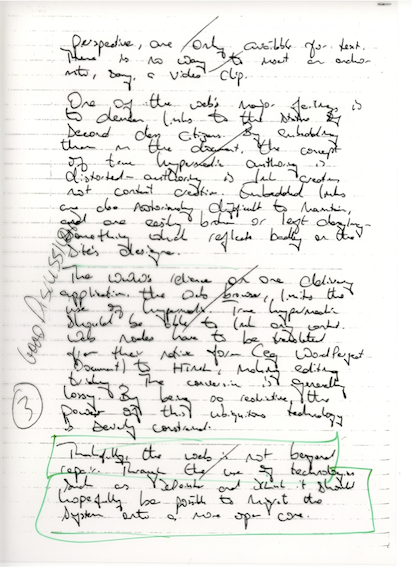 perspective, are only available for text.
There is no way to insert an anchor
into, say, a video clip.
One of the web's major failings is
to demean links to the status of
second class citizens. By embedding
them in the document, the concept
of true hypermedia authoring is
distorted – authoring is link creation
not content creation. Embedded links
are also notoriously difficult to maintain,
and are easily broken or left dangling –
something which reflects badly on the
site's designer.
Good Discussion
The WWW's reliance on one delivery
application, the web browser, limits the
use of hypermedia. True hypermedia
should be able to link any content.
Web nodes have to be translated
from their native form (eg WordPerfect
Document) to HTML, making editing
tricky. The conversion is generally
lossy. By being so restrictive, the
power of this ubiquitous technology
is severely constrained.
3
Thankfully, the web is not beyond
repair. Through the use of technologies
such as and it should
hopefully be possible to migrate the
system onto a more open core.